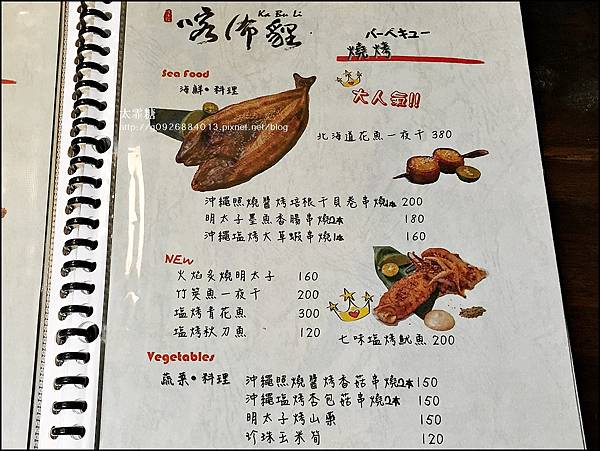 喀佈貍
Ka Bu Li
バーベキュー
燒烤
Sea Food
海鮮•料理
大人氣!!
太霏糖
http://g0926884013.pixnet.net/blog
北海道花魚一夜干 380
沖繩照燒醬烤培根干貝卷串燒1本 200
明太子墨魚香腸串燒2本 180
沖繩塩烤大草蝦串燒1本 160
NEw
火焰炙燒明太子 160
竹筴魚一夜干 200
塩烤青花魚 300
塩烤秋刀魚 120
七味塩烤魷魚 200
Vegetables
蔬菜•料理
沖繩照燒醬烤香菇串燒2本 150
沖繩塩烤杏包菇串燒2本 150
明太子烤山藥 150
珍珠玉米筍 120